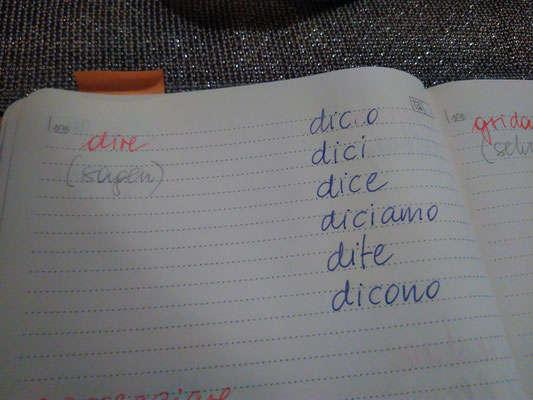 dire
(sagen)
dico
dici
dice
diciamo
dite
dicono
grida
(sch